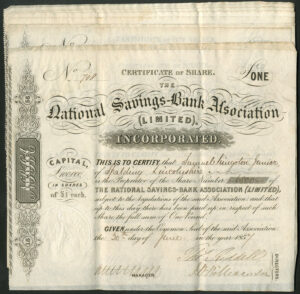 No
CERTIFICATE OF SHARE.
£ ONE
THE
National Savings-Bank Association
(LIMITED),
INCORPORATED.
CAPITAL,
IN SHARES
of £1 each.
THIS IS TO CERTIFY, that Samuel Kingston Junior
of Spalding Lincolnshire is
the Proprietor of the Share Number of
THE NATIONAL SAVINGS-BANK ASSOCIATION (LIMITED),
subject to the regulations of the said Association: and that
up to this day there has been paid up, in respect of such
Share, the full sum of One Pound.
GIVEN under the Common Seal of the said Association,
the 30th day of June in the year 1857
MANAGER
DIRECTORS.